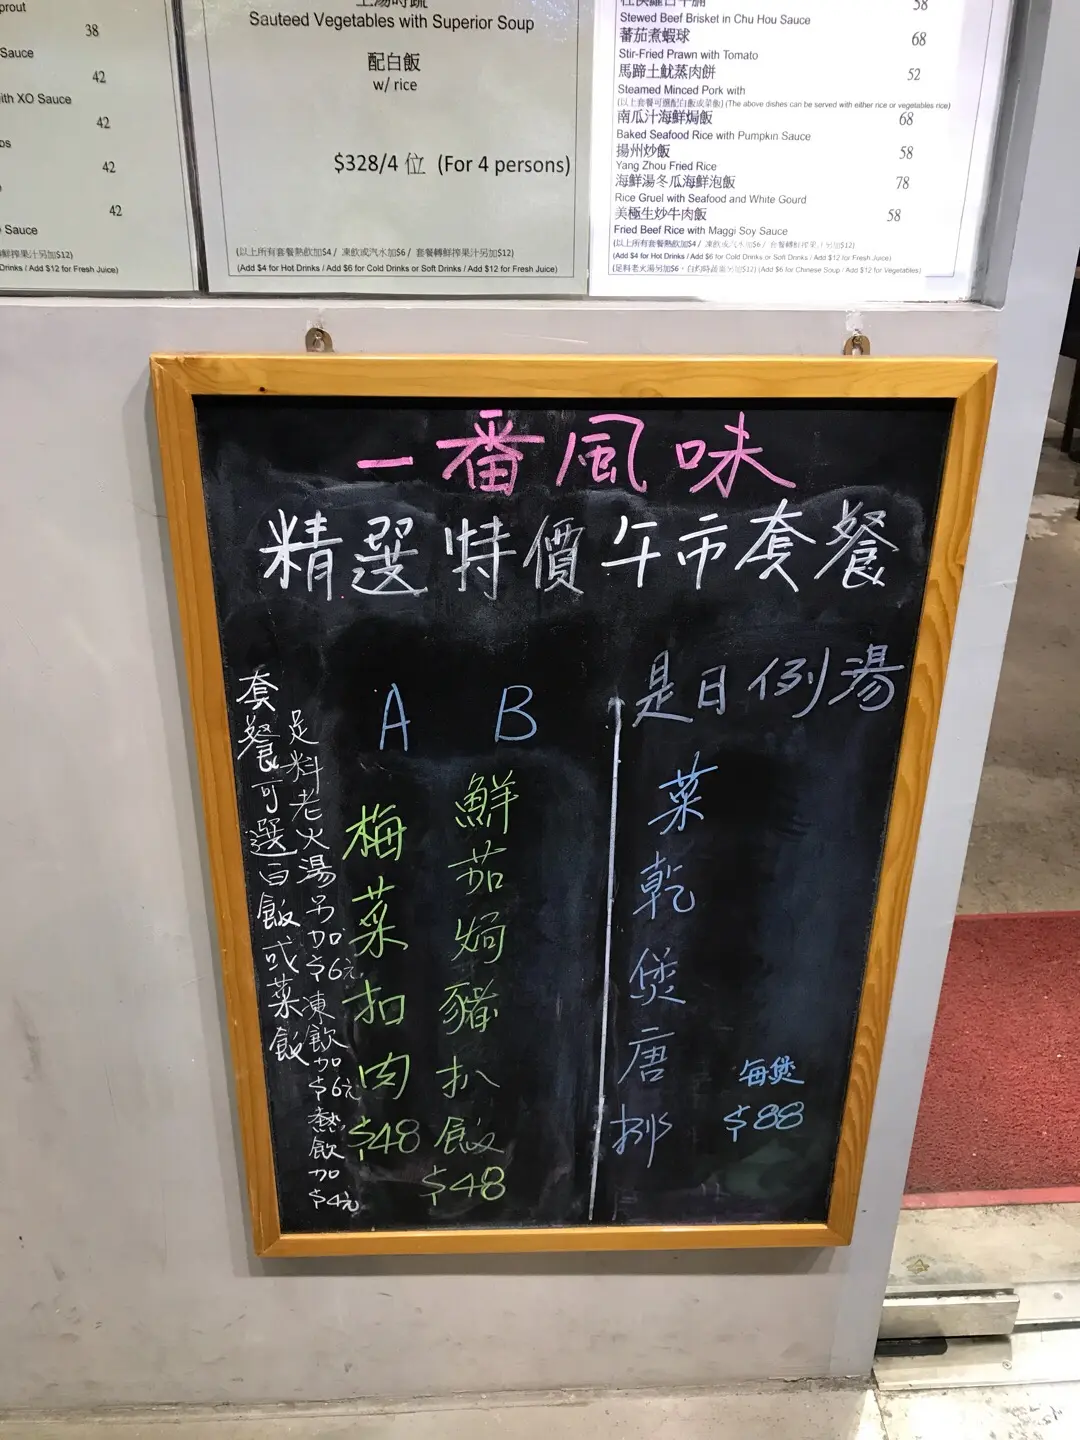 prout
38
Sauce
42
ith XO Sauce
42
os
42
42
Sauce
(Add $4 for Hot Drinks / Add $6 for Cold Drinks or Soft Drinks / Add $12 for Fresh Juice)
Drinks / Add $12 for Fresh Juice)
上湯時蔬
Sauteed Vegetables with Superior Soup
配白飯
w/ rice
$328/4 位 (For 4 persons)
(以上所有套餐熱飲加$4 / 凍飲或汽水加$6 / 套餐轉鮮搾果汁另加$12)
58
Stewed Beef Brisket in Chu Hou Sauce
蕃茄煮蝦球 68
Stir-Fried Prawn with Tomato
馬蹄土魷蒸肉餅 52
Steamed Minced Pork with
(以上套餐可選配白飯或菜飯) (The above dishes can be served with either rice or vegetables rice)
南瓜汁海鮮焗飯 68
Baked Seafood Rice with Pumpkin Sauce
揚州炒飯 58
Yang Zhou Fried Rice
海鮮湯冬瓜海鮮泡飯 78
Rice Gruel with Seafood and White Gourd
美極生炒牛肉飯 58
Fried Beef Rice with Maggi Soy Sauce
(以上所有套餐熱飲加$4 / 凍飲或汽水加$6 / 套餐轉鮮搾果汁另加$12)
(Add $4 for Hot Drinks / Add $6 for Cold Drinks or Soft Drinks / Add $12 for Fresh Juice)
(足料老火湯另加$6，白灼時蔬另加$12) (Add $6 for Chinese Soup / Add $12 for Vegetables)
一番風味
精選特價午市套餐
套餐可選白飯或菜飯
足料老火湯另加$6元凍飲加$6元熱飲加$4元
A
梅菜扣肉
$48
B
鮮茄焗豬扒飯
$48
是日例湯
菜乾煲唐排
每煲
$88